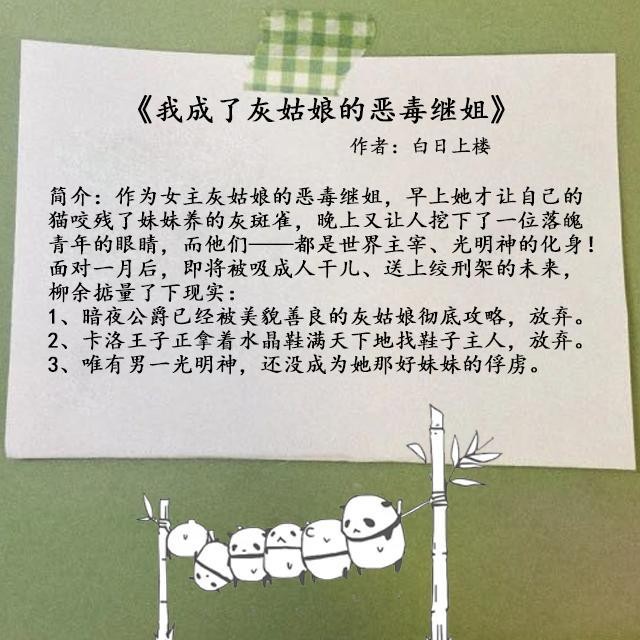 《我成了灰姑娘的恶毒继姐》
作者：白日上楼
简介：作为女主灰姑娘的恶毒继姐，早上她才让自己的
猫咬残了妹妹养的灰斑雀，晚上又让人挖下了一位落魄
青年的眼睛，而他们——都是世界主宰、光明神的化身！
面对一月后，即将被吸成人干儿、送上绞刑架的未来，
柳余掂量了下现实：
1、暗夜公爵已经被美貌善良的灰姑娘彻底攻略，放弃。
2、卡洛王子正拿着水晶鞋满天下地找鞋子主人，放弃。
3、唯有男一光明神，还没成为她那好妹妹的俘虏。